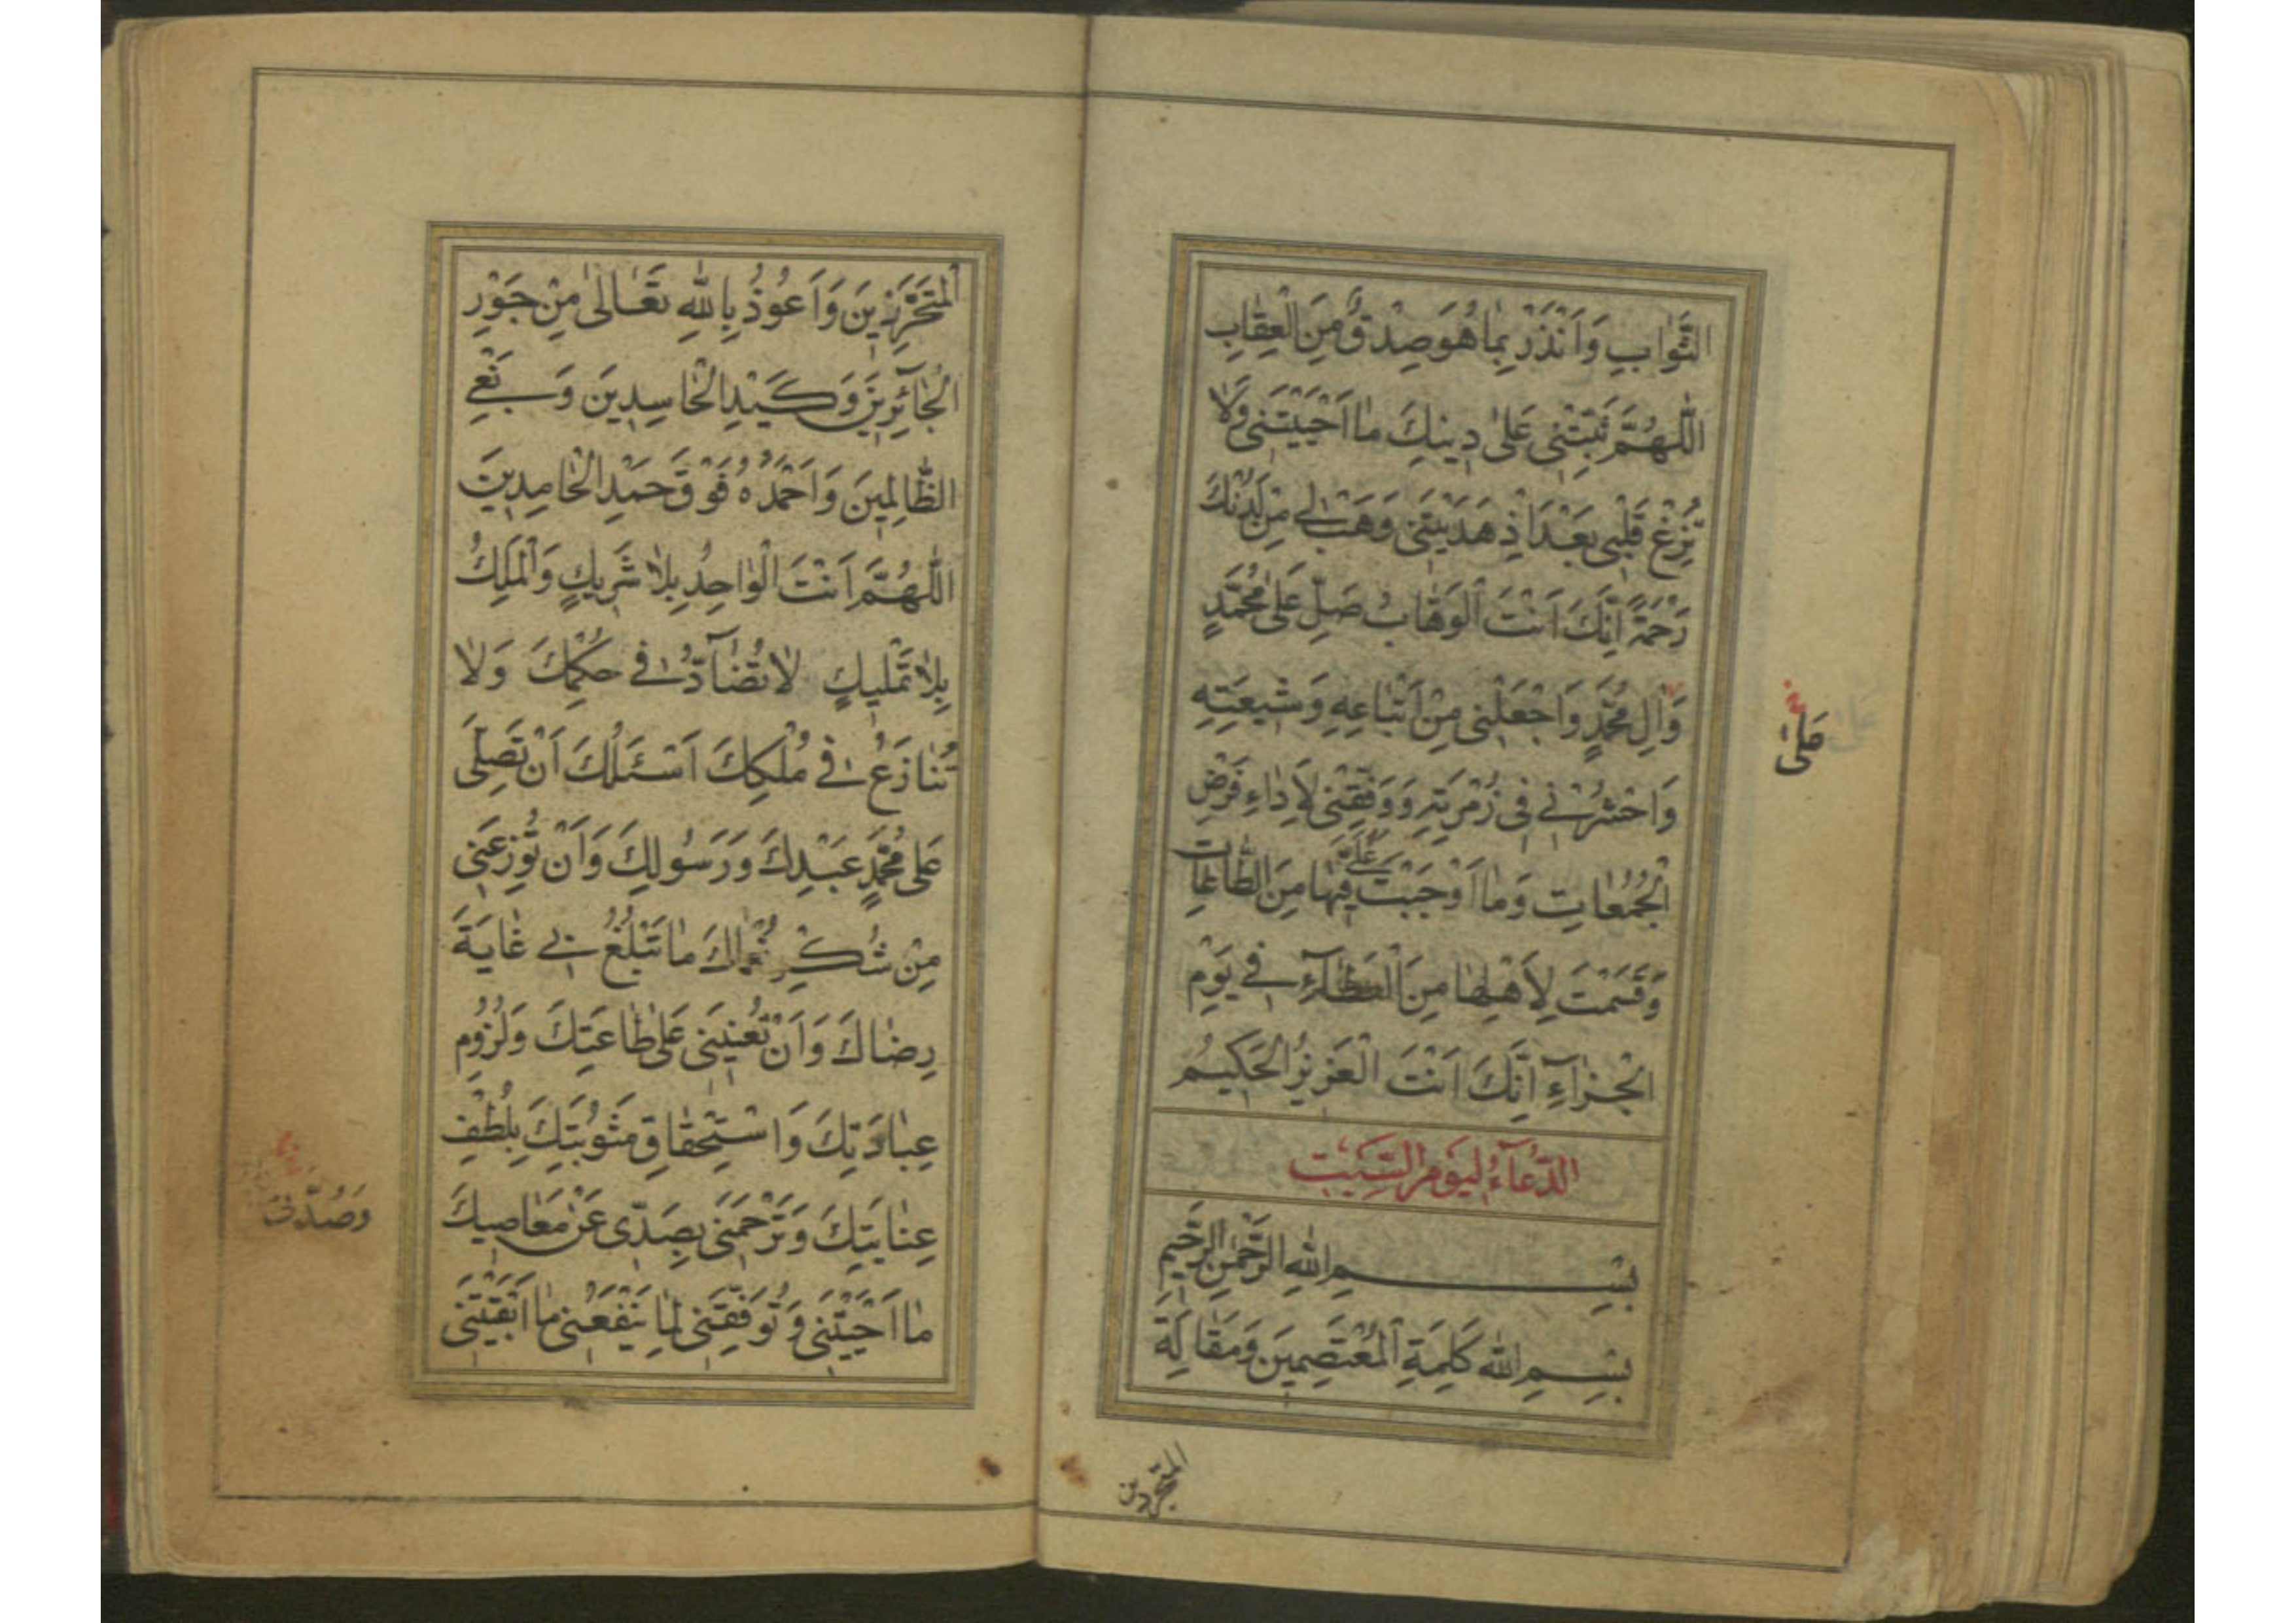 الثَّوٰابِ وَاَنْذَرَ بِمٰا هُوَ صِدْقٌ مِنَ الْعِقٰابِ
اَللّٰهُمَّ ثَبِّتْنى عَلىٰ دِينِكَ مٰا اَحْيَيْتَنى وَلاٰ
تُزِغْ قَلْبى بَعْدَ اِذْ هَدَيْتَنى وَهَبْ لى مِنْ لَدُنْكَ
رَحْمَةً اِنَّكَ اَنْتَ الْوَهّٰابُ صَلِّ عَلىٰ مُحَمَّدٍ
وَاٰلِ مُحَمَّدٍ وَاجْعَلْنى مِنْ اَتْبٰاعِهِ وَشيعَتِهِ
وَاحْشُرْنى فى زُمْرَتِهِ وَوَفِّقْنى لِاَدٰاءِ فَرْضِ
الْجُمُعٰاتِ وَمٰا اَوْجَبْتَ عَلَىَّ فيهٰا مِنَ الطّٰاعٰاتِ
وَقَسَمْتَ لِاَهْلِهٰا مِنَ الْعَطٰآءِ فى يَوْمِ
الْجَزٰآءِ اِنَّكَ اَنْتَ الْعَزيزُ الْحَكيمُ
الدُّعٰآءُ لِيَوْمِ السَّبْتِ
بِسْمِ اللّٰهِ الرَّحْمٰنِ الرَّحيمِ
بِسْمِ اللّٰهِ كَلِمَةِ الْمُعْتَصِمينَ وَمَقٰالَةِ
المتحرزين
اَلْمُتَحَرِّزينَ وَاَعُوذُ بِاللّٰهِ تَعٰالىٰ مِنْ جَوْرِ
الْجٰآئِرينَ وَكَيْدِ الْحٰاسِدينَ وَبَغْىِ
الظّٰالِمينَ وَاَحْمَدُهُ فَوْقَ حَمْدِ الْحٰامِدينَ
اَللّٰهُمَّ اَنْتَ الْوٰاحِدُ بِلاٰ شَريكٍ وَالْمَلِكُ
بِلاٰ تَمْليكٍ لاٰ تُضٰآدُّ فى حُكْمِكَ وَلاٰ
تُنٰازَعُ فى مُلْكِكَ اَسْئَلُكَ اَنْ تُصَلِّىَ
عَلىٰ مُحَمَّدٍ عَبْدِكَ وَرَسُولِكَ وَاَنْ تُوزِعَنى
مِنْ شُكْرِ نُعْمٰاكَ مٰا تَبْلُغُ بى غٰايَةَ
رِضٰاكَ وَاَنْ تُعينَنى عَلىٰ طٰاعَتِكَ وَلُزُومِ
عِبٰادَتِكَ وَاسْتِحْقٰاقِ مَثُوبَتِكَ بِلُطْفِ
عِنٰايَتِكَ وَتَرْحَمَنى بِصَدّى عَنْ مَعٰاصيكَ
مٰا اَحْيَيْتَنى وَتُوَفِّقَنى لِمٰا يَنْفَعُنى مٰا اَبْقَيْتَنى